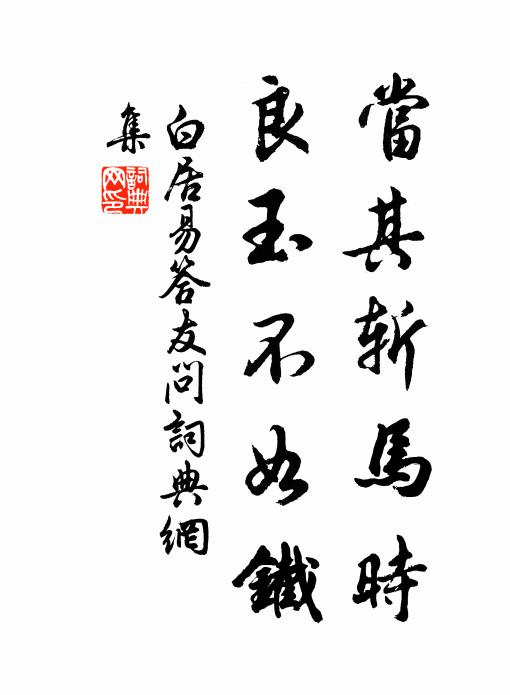 當其斬馬時
良玉不如鐵
白居易答友問詞典網
集
詞典
网印